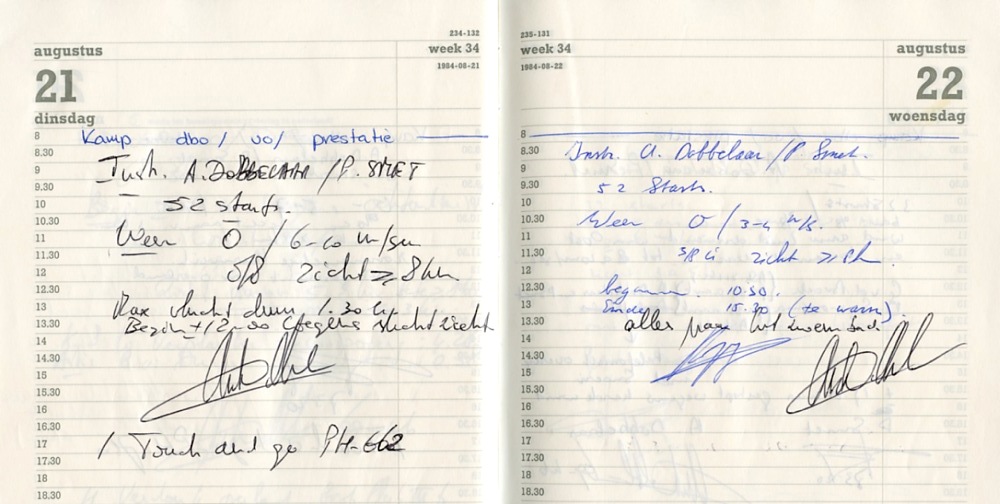 234-132
augustus
week 34
21
1984-08-21
dinsdag
8
Kamp dbo / vo / prestatie
8.30
9
Instr. A. DOBBELAAR / P. SMET
9.30
10
52 starts.
10.30
11
Weer O / 6-10 m/sec
11.30
12
0/8 zicht ≥ 8 km
12.30
13
Max vlucht duur 1.30 h
13.30
Begin ± 12-00 wegens slecht zicht
14
14.30
15
15.30
16
16.30
17
1 Touch and go PH-662
17.30
18
18.30
235-131
week 34
augustus
1984-08-22
22
woensdag
8
8.30
Instr. A. Dobbelaar / P. Smet.
9
9.30
52 Starts.
10
10.30
Weer O / 3-4 m/s.
11
11.30
zicht
12
12.30
begonnen 10.30.
13
Einde 15.30 (te warm).
13.30
alles naar het
14
14.30
15
15.30
16
16.30
17
17.30
18
18.30